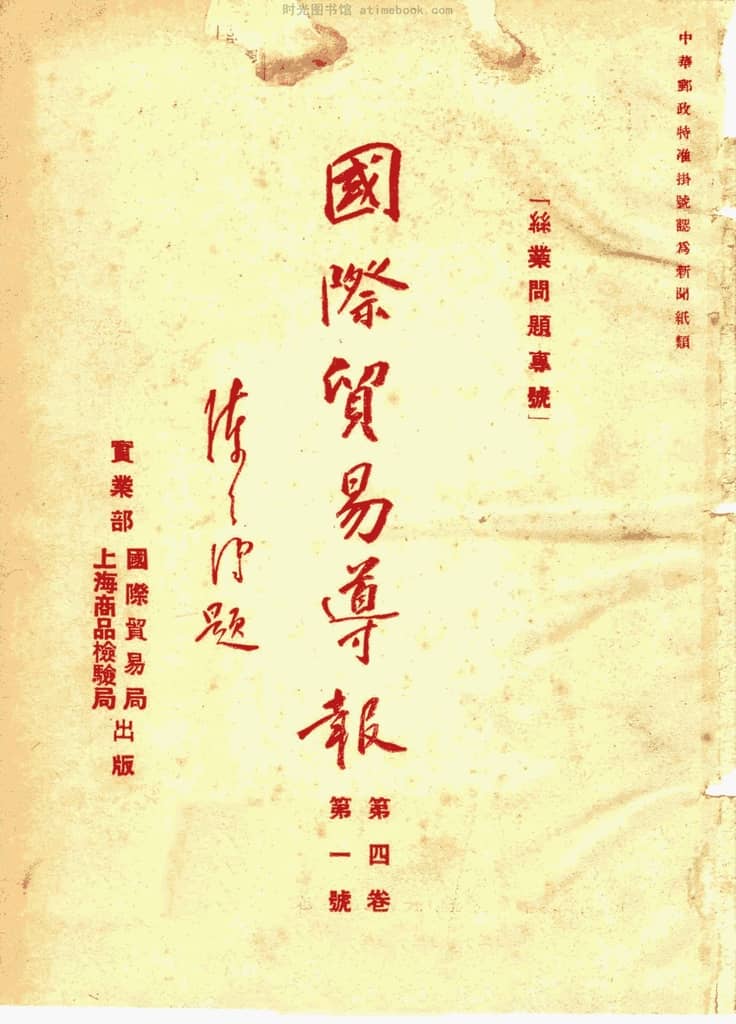 时光图书馆 atimebook.com
中華郵政特准掛號認爲新聞紙類
「絲業問題專號」
國際貿易導報
第四卷
第一號
題
實業部
國際貿易局
上海商品檢驗局
出版